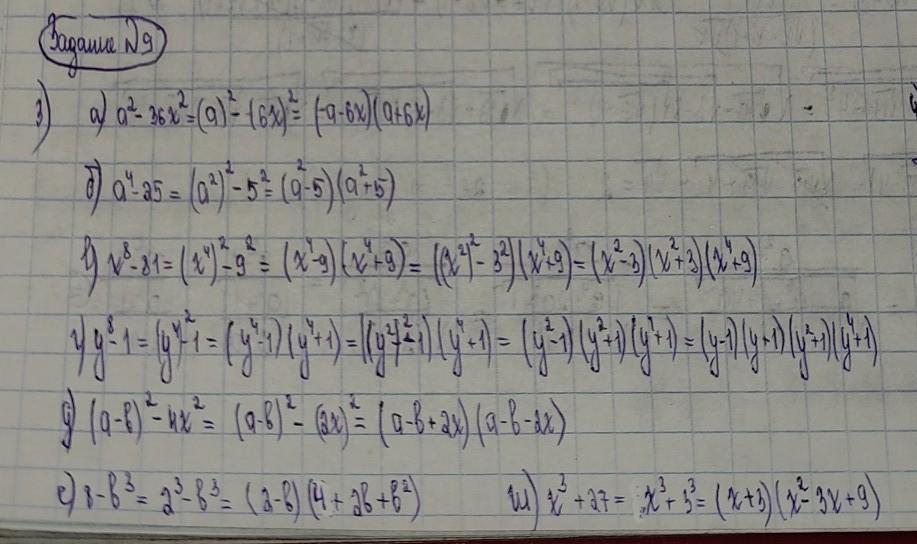 Задание №9
3) а) a² - 36x² = (a)² - (6x)² = (-a-6x)(a+6x)
б) a⁴-25 = (a²)² - 5² = (a²-5)(a²+5)
в) x⁸-81 = (x⁴)² - 9² = (x⁴-9)(x⁴+9) = ((x²)² - 3²)(x⁴+9) = (x²-3)(x²+3)(x⁴+9)
г) y⁸-1 = (y⁴)²-1 = (y⁴-1)(y⁴+1) = ((y²)²-1)(y⁴+1) = (y²-1)(y²+1)(y⁴+1) = (y-1)(y+1)(y²+1)(y⁴+1)
д) (a-b)² - 4x² = (a-b)² - (2x)² = (a-b+2x)(a-b-2x)
е) 8-b³ = 2³-b³ = (2-b)(4+2b+b²) ш) x³+27 = x³+3³ = (x+3)(x²-3x+9)